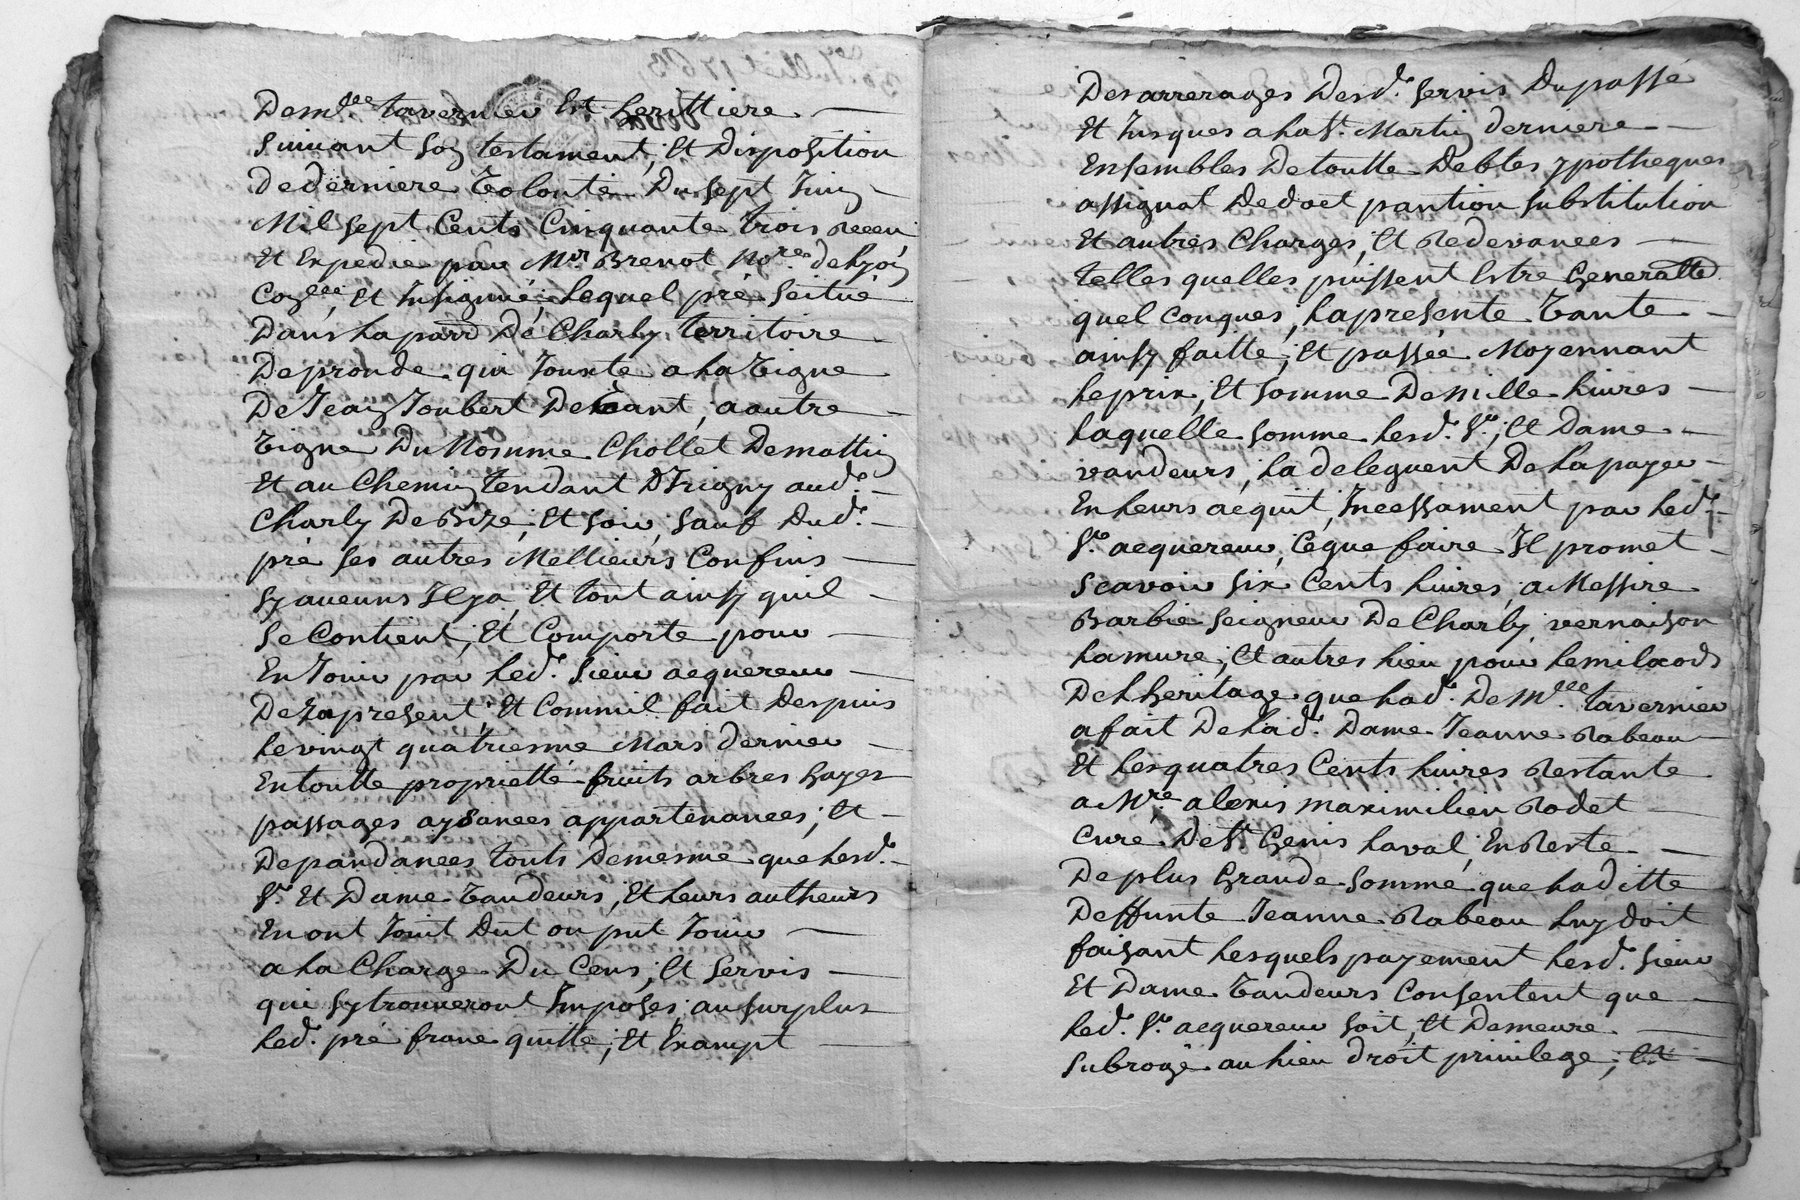 Dem.lle Tavernier Est herittiere
Suivant Son testament, Et Disposition
De derniere Volonté Du sept Juin
Mil Sept Cents Cinquante trois Receu
Et Expedie par Mr. Brenot, No.re de Lyon
Con.llé Et Insignué; Lequel pré Scitué
Dans La parr. De Charly territoire
De pronde qui Jouxte a La Vigne
De Jean Joubert De vant, a autre
Vigne Du Nommé Chollet De mattin
Et au Chemin tendant D'Irigny aud.
Charly De Bize, Et Soir, Sauf Dud.
pré Ses autres Mellieurs Confins
Sy aucuns Il y a, Et tout ainsy quil
Se Contient, Et Comporte pour
En Jouir par Led. Sieur acquereur
Deza present, Et Comm'il fait Despuis
Le vingt quatriesme Mars dernier
En toutte proprietté fruits arbres hayes
passages aysances appartenances, Et
Depandances touts De mesme que Lesd.
Sr. Et Dame Vandeurs, Et Leurs autheurs
En ont Jouit Dut ou put Jouir
a La Charge Du Cens, Et Servis
qui Sy trouveront Imposés, au surplus
Led. pré franc quitte, Et Exampt
Des arrerages Desd. Servis Du passé
Et Jusques a La St. Martin derniere
Ensembles De toutte Debtes ypotheques
assignat De doct pantion Substitution
Et autres Charges, Et Redevances
telles quelles puissent Estre Generalle
quel conques, La presente Vante
ainsy faitte, Et passée Moyennant
Le prix, Et Somme De Mille Livres
Laquelle Somme Lesd. Sr., Et Dame
vandeurs, La deleguent De La payer
En Leurs acquit, Incessament par Led.
Sr. acquereur, Ce que faire Il promet
Scavoir Six Cents Livres, a Messire
Barbie Seigneur De Charly, vernaison
Lamure, Et autres Lieu pour Le milaods
De L heritage que Lad. De M.lle Tavernier
a fait De Lad. Dame Jeanne Rabeau
Et Les quatres Cents Livres Restante
a M.re alexis maximilien Rodet
Curé De St Genis Laval, En Reste
De plus Grande Somme que Laditte
Deffunte Jeanne Rabeau Luy doit
faisant Lesquels payement Lesd. Sieur
Et Dame Vandeurs Consentent que
Led. Sr. acquereur Soit, Et Demeure
Subrogé au Lieu droit privilege, Et